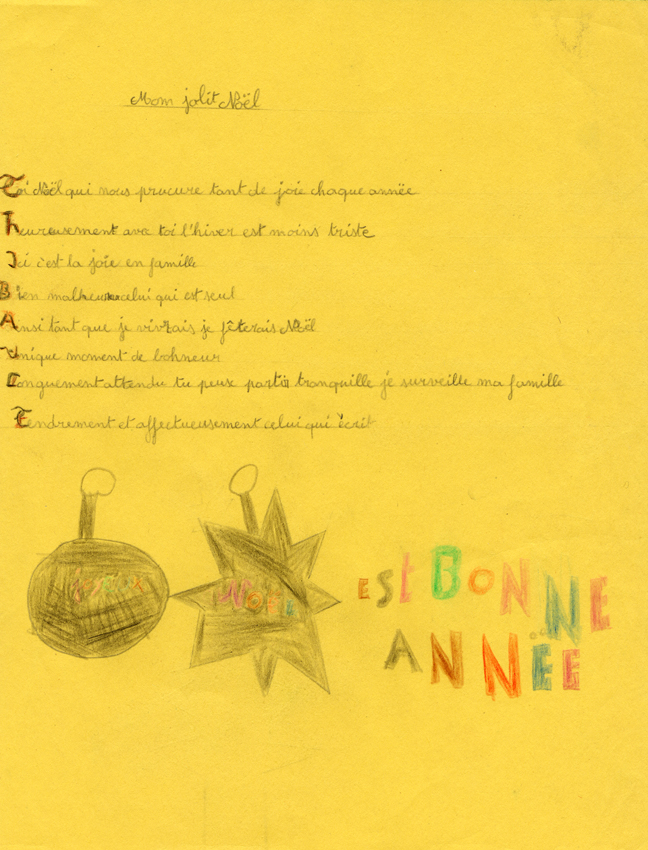 Mon jolit Noël
Toi Noël qui nous prucure tant de joie chaque annëe
heureusement avec toi l'hiver est moins triste
Ici c'est la joie en famille
Bien malheureux celui qui est seul
Ainsi tant que je vivrais je fêterais Noël
Unique moment de bohneur
Longuement attendu tu peux partir tranquille je surveille ma famille
Tendrement et affectueusement celui qui écrit
joyeux Noël EST BONNE
ANNËE